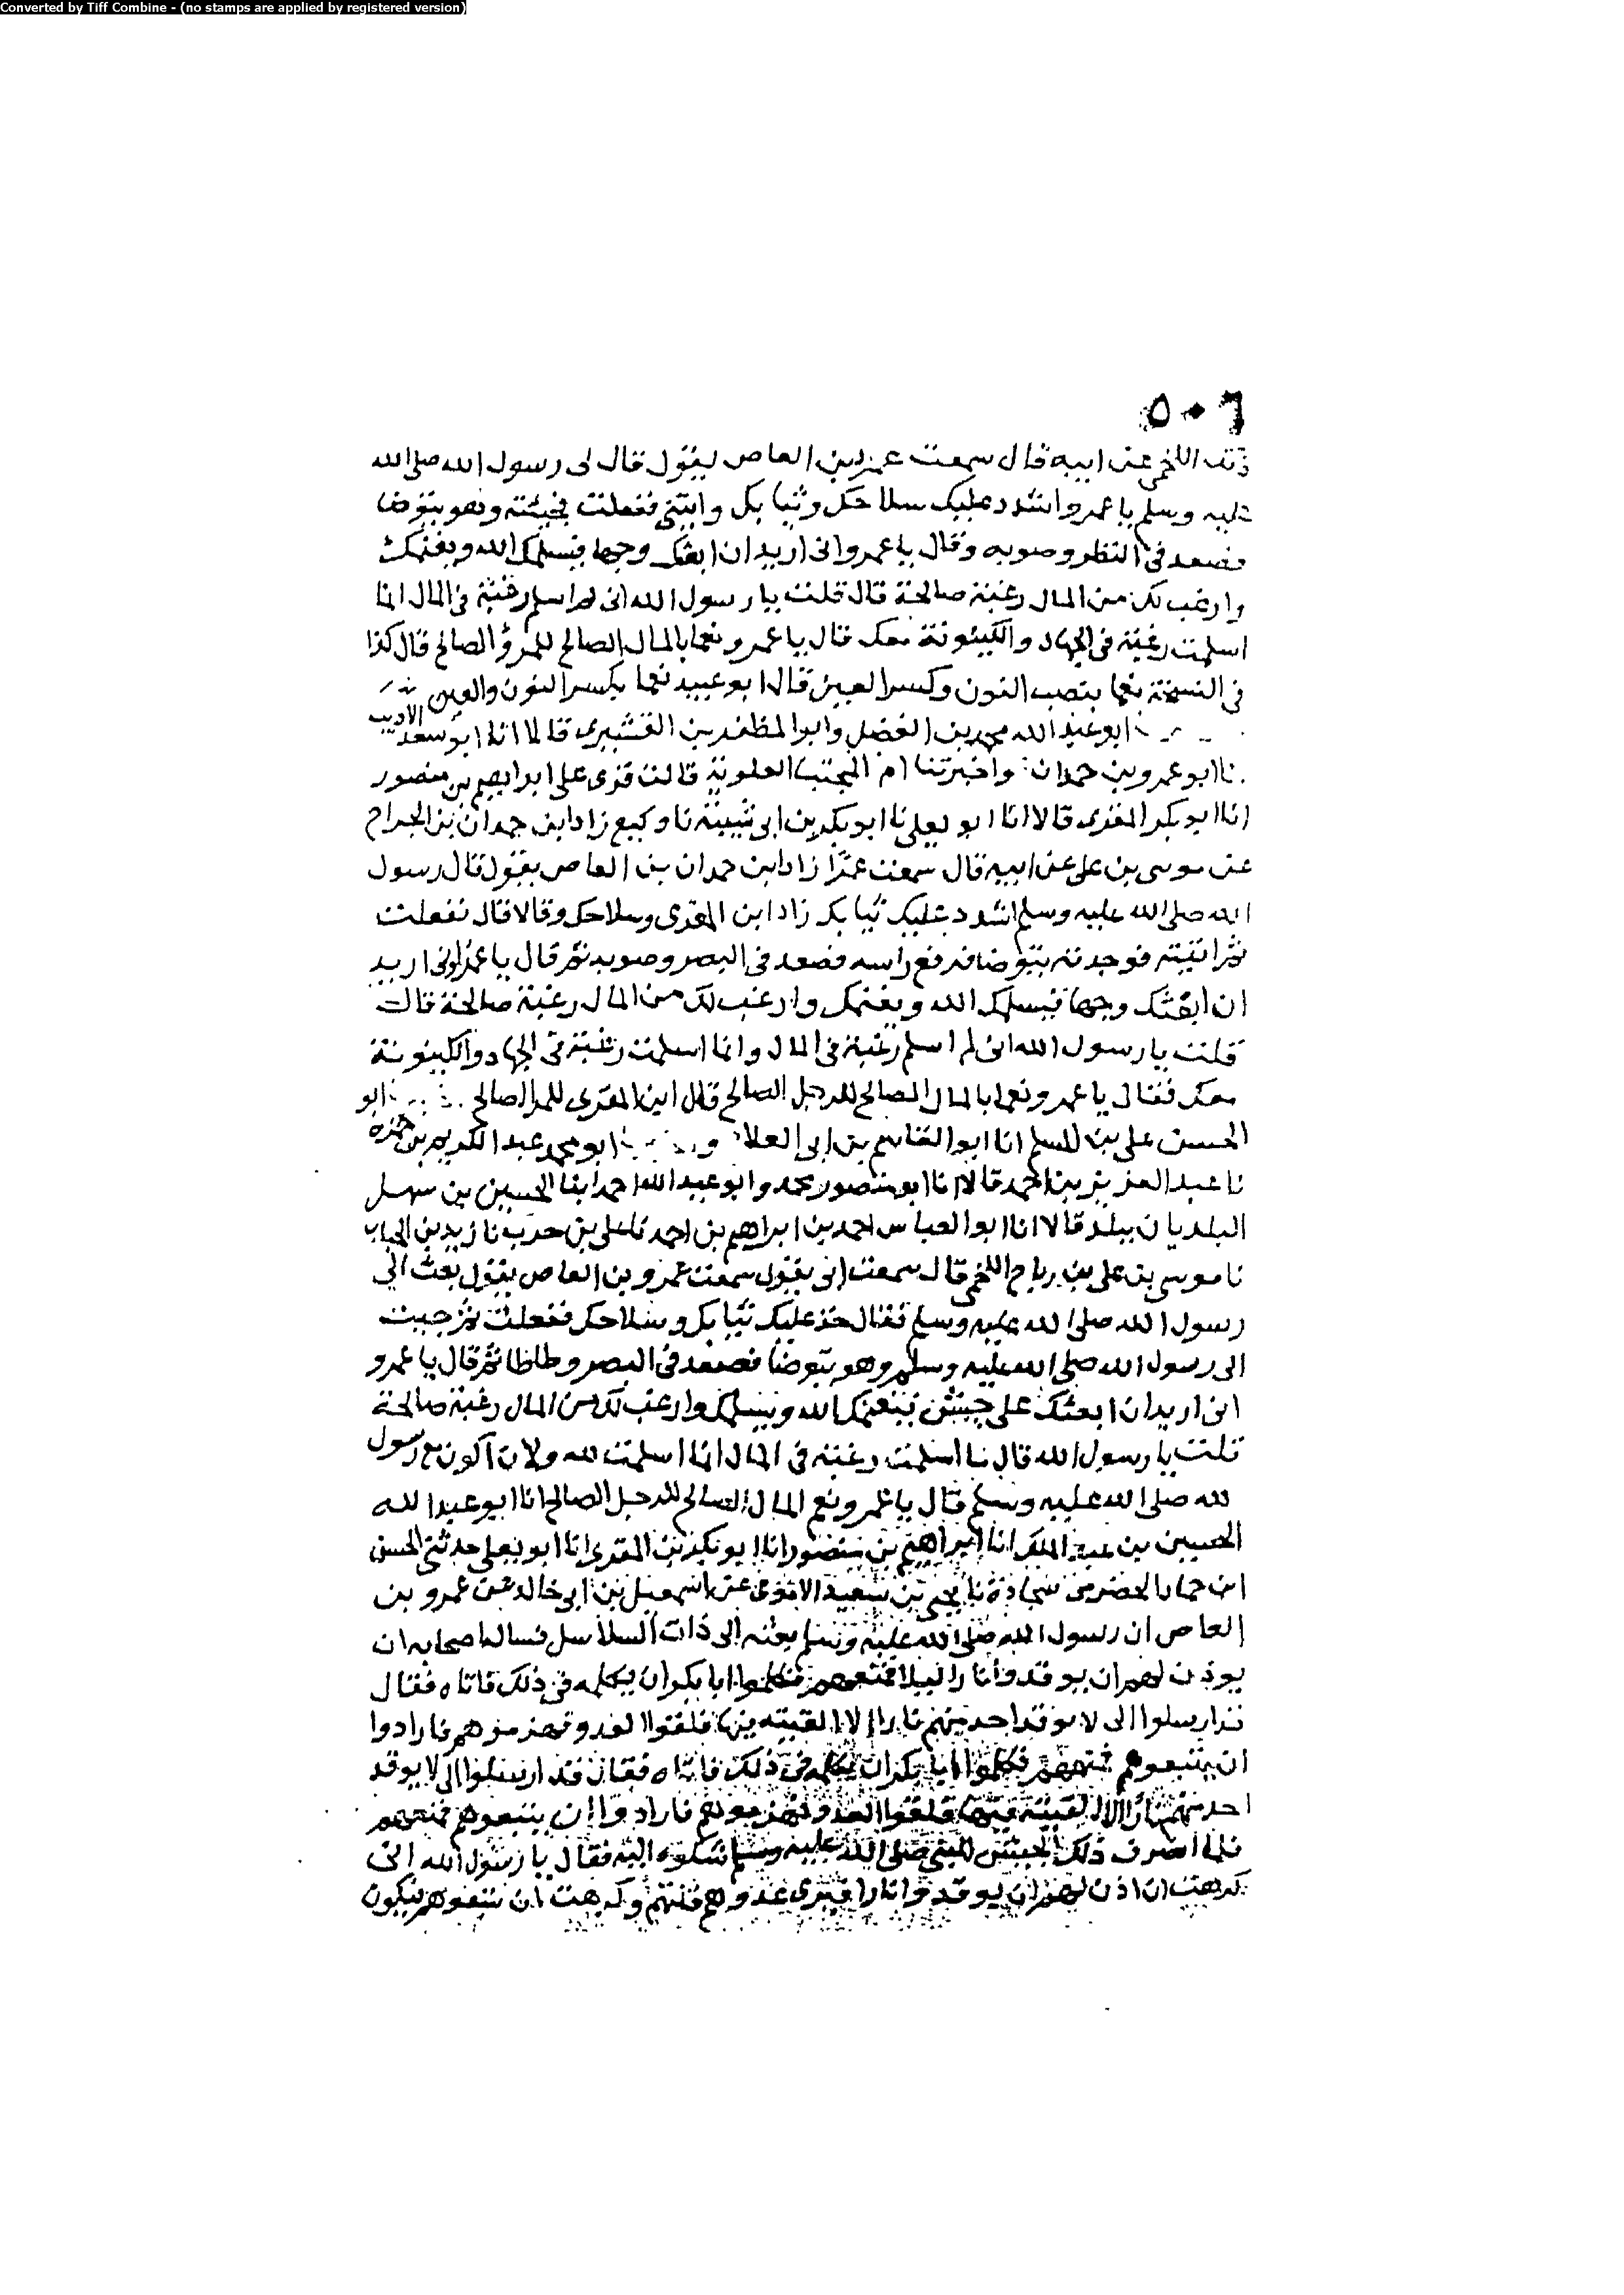 Converted by Tiff Combine - (no stamps are applied by registered version)
٥٠٦
اللخمى عن ابيه قال سمعت عمرو بن العاص يقول قال لى رسول الله صلى الله
عليه وسلم يا عمرو اشدد عليك سلاحك وثيابك وايتنى ففعلت فجيئته وهو يتوضا
فصعد فى النظر وصوبه وقال يا عمرو انى اريد ان ابعثك وجها فيسلمك الله ويغنمك
وارغب لك من المال رغبة صالحة قال قلت يا رسول الله انى لم اسلم رغبة فى المال انما
اسلمت رغبة فى الجهاد والكينونة معك قال يا عمرو نعما بالمال الصالح للمرؤ الصالح قال كذا
فى النسخة نعما بنصب النون وكسر العين قال ابو عبيد نعما بكسر النون والعين
ابو عبد الله محمد بن الفضل وابو المظفر بن القشيرى قالا انا ابو سعد الاديب
نا ابو عمرو بن حمدان واخبرتنا ام المجتبا العلوية قالت قرى على ابراهيم بن منصور
انا ابو بكر المقرى قالا انا ابو يعلى نا ابو بكر بن ابى شيبة نا وكيع زاد ابن حمدان بن الجراح
عن موسى بن على عن ابيه قال سمعت عمرا زاد ابن حمدان بن العاص يقول قال رسول
الله صلى الله عليه وسلم اشدد عليك ثيابك زاد ابن المقرى وسلاحك وقالا قال ففعلت
ثم اتيته فوجدته يتوضا فرفع راسه فصعد فى البصر وصوبه ثم قال يا عمرو انى اريد
ان ابعثك وجها فيسلمك الله ويغنمك وارغب لك من المال رغبة صالحة قال
قلت يا رسول الله انى لم اسلم رغبة فى المال وانما اسلمت رغبة فى الجهاد والكينونة
معك فقال يا عمرو نعما بالمال الصالح للرجل الصالح قال ابن المقرى للمر الصالح ابو
الحسن على بن المسلم انا ابو القاسم بن ابى العلا ابو محمد عبد الكريم بن حمزه
نا عبد العزيز بن احمد قالا انا ابو منصور محمد وابو عبد الله احمد ابنا الحسين بن سهل
البلديان ببلد قالا انا ابو العباس احمد بن ابراهيم بن احمد نا على بن حرب نا زيد بن الحباب
نا موسى بن على بن رباح اللخمى قال سمعت ابى يقول سمعت عمرو بن العاص يقول بعث الى
رسول الله صلى الله عليه وسلم فقال خذ عليك ثيابك وسلاحك ففعلت ثم جيت
الى رسول الله صلى الله عليه وسلم وهو يتوضا فصعد فى البصر وطاطا ثم قال يا عمرو
انى اريد ان ابعثك على جيش فيغنمك الله ويسلمك وارغب لك من المال رغبة صالحة
قلت يا رسول الله قال ما اسلمت رغبة فى المال انما اسلمت لله ولان اكون مع رسول
لله صلى الله عليه وسلم قال يا عمرو نعم المال الصالح للرجل الصالح انا ابو عبد الله
الحسين بن عبد الملك انا ابراهيم بن منصور انا ابو بكر بن المقرى انا ابو يعلى حدثنى الحسن
ابن حماد الحضرمى سجادة نا يحيى بن سعيد الاموى عن اسمعيل بن ابى خالد عن عمرو بن
العاص ان رسول الله صلى الله عليه وسلم بعثه الى ذات السلاسل فساله اصحابه ان
يوذن لهم ان يوقدوا نارا ليلا فمنعهم فكلموا ابا بكر ان يكلمه فى ذلك فاتاه فقال
قد ارسلوا الى لا يوقد احد منهم نارا الا القيته فيها فلقوا العدو فهزموهم فارادوا
ان يتبعوهم فمنعهم فكلموا ابا بكر ان يكلمه فى ذلك فاتاه فقال قد ارسلوا الى لا يوقد
احد منهم نارا الا القيته فيها فلقوا العدو فهزموهم فارادوا ان يتبعوهم فمنعهم
فلما انصرف ذلك الجيش للنبى صلى الله عليه وسلم شكوه اليه فقال يا رسول الله انى
كرهت ان اذن لهم ان يوقدوا نارا فيرى عدوهم قلتهم وكرهت ان يتبعوهم فيكون